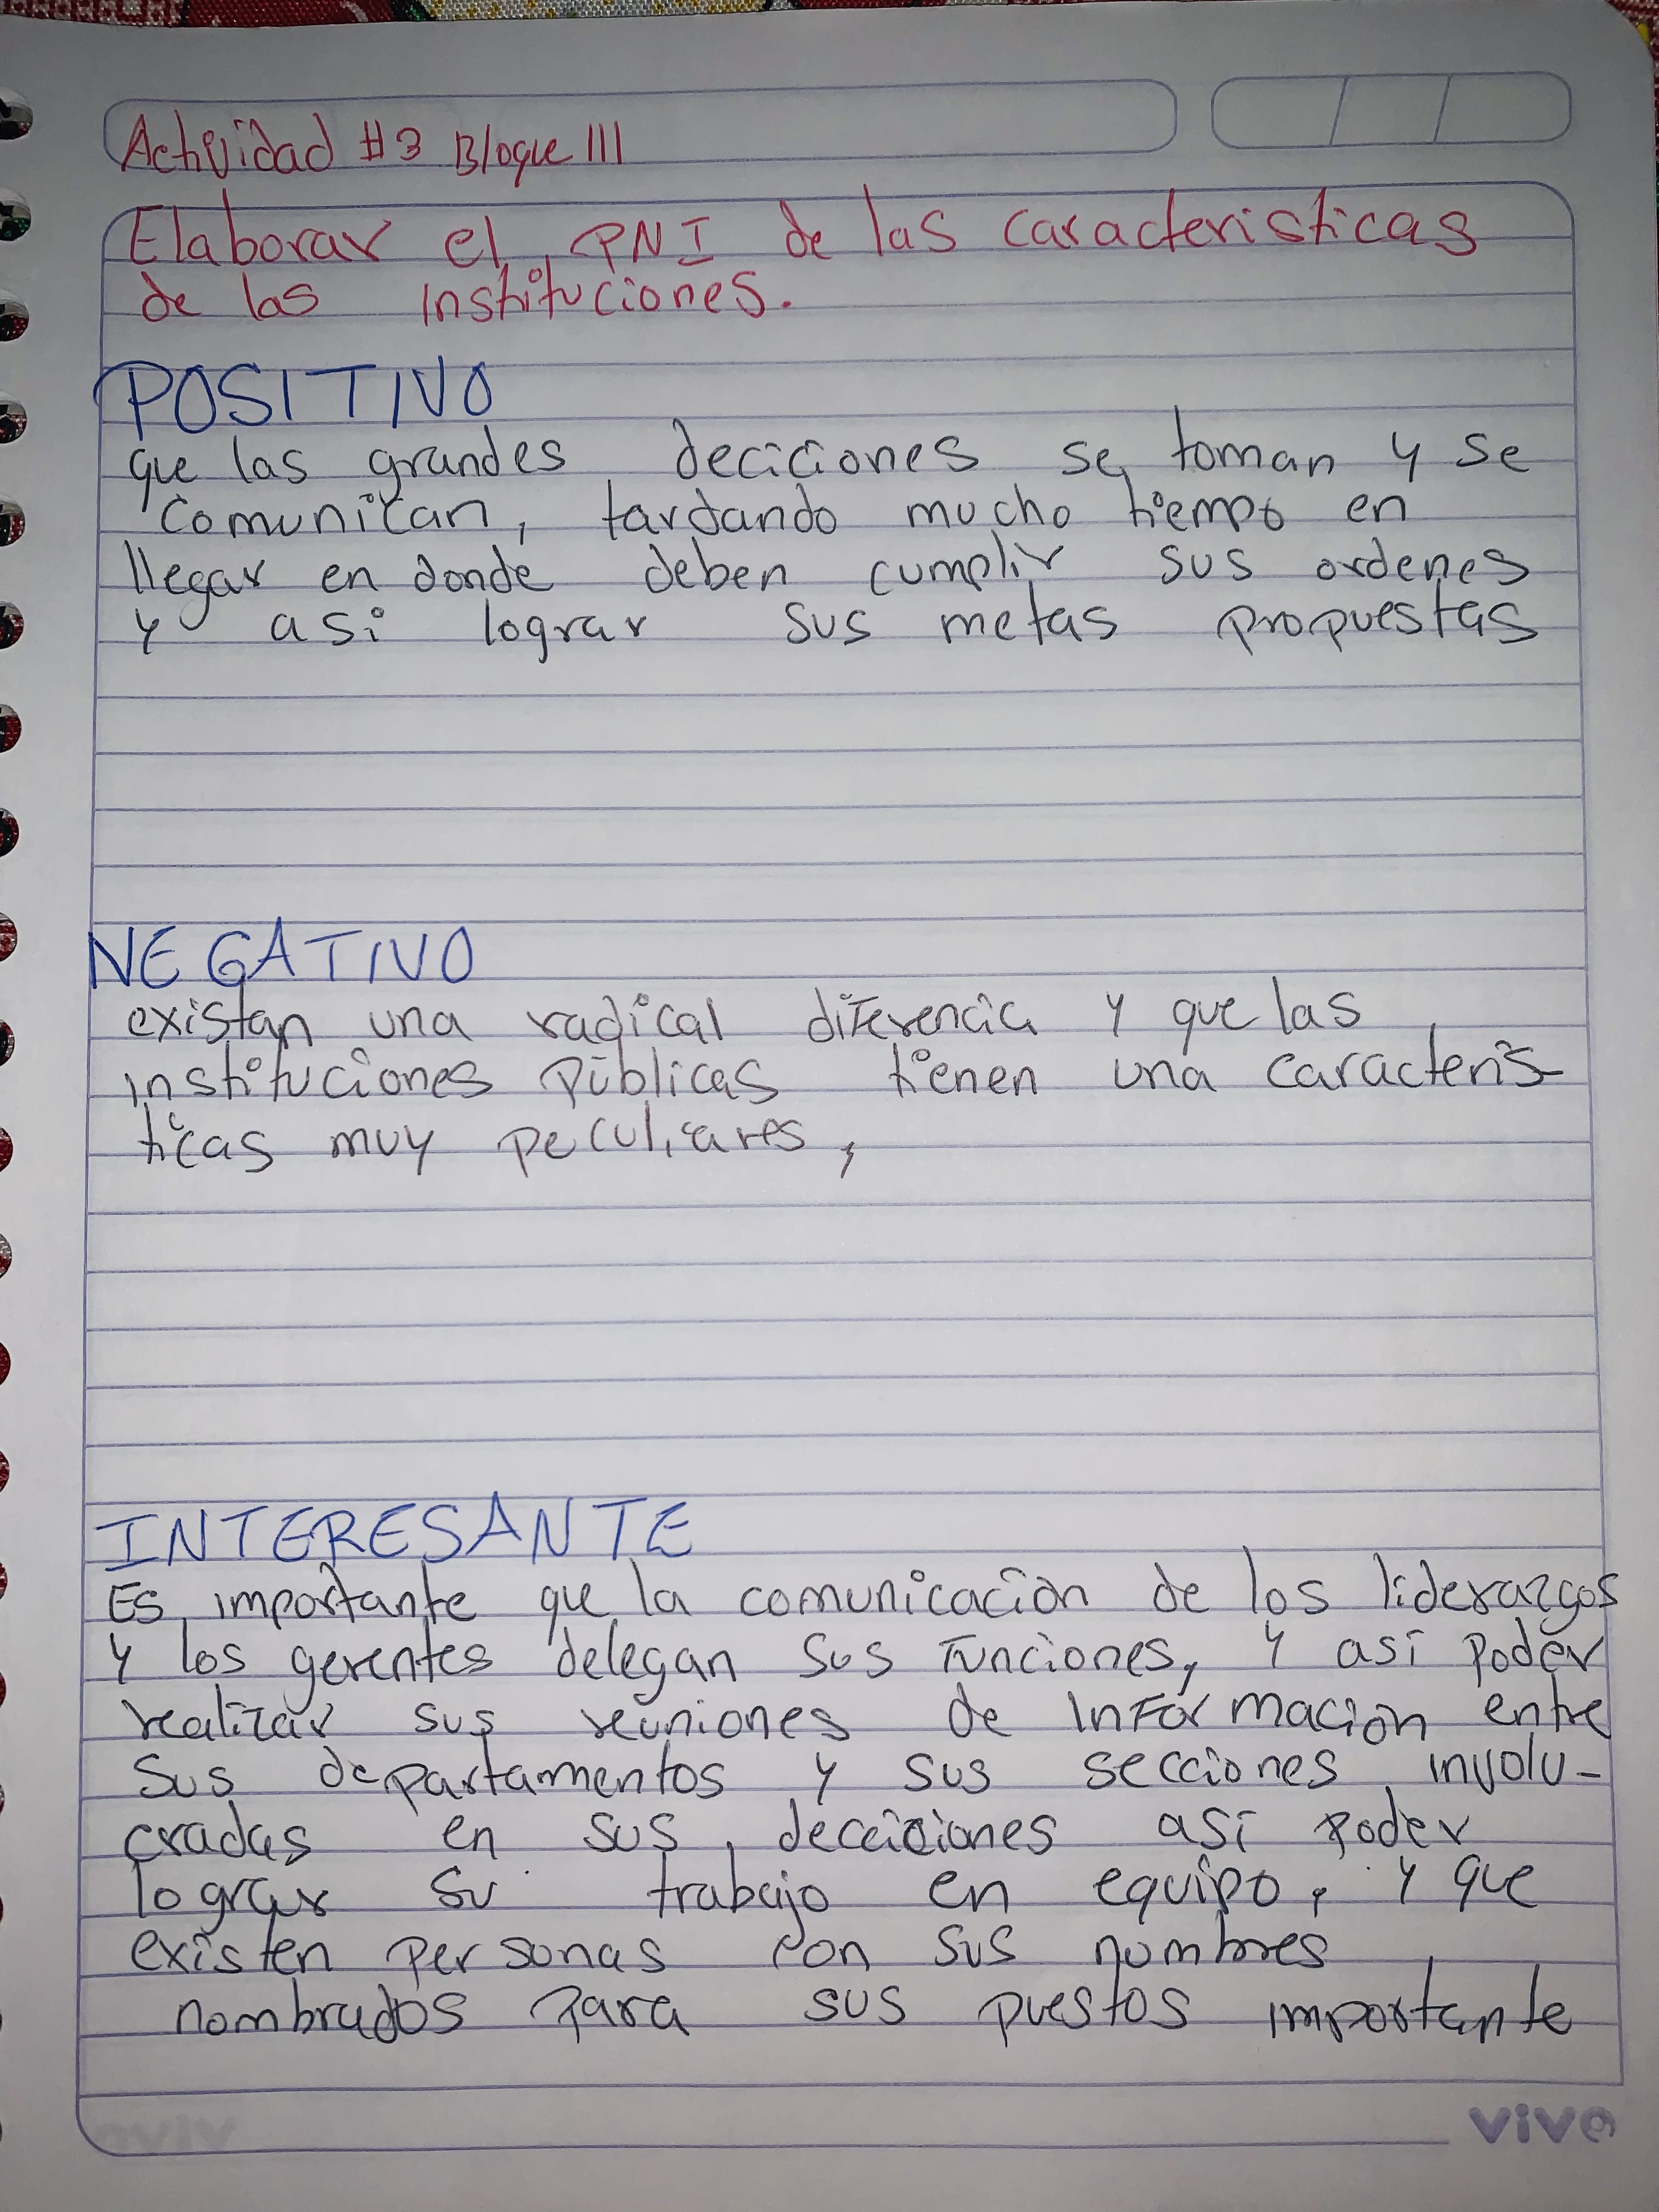 Actividad #3 Bloque III
Elaborar el PNI de las caracteristicas
de las instituciones.
POSITIVO
que las grandes deciciones se toman y se
comunican, tardando mucho tiempo en
llegar en donde deben cumplir sus ordenes
y asi lograr sus metas propuestas
NEGATIVO
existan una radical diferencia y que las
instituciones públicas tienen una caracterís-
ticas muy peculiares,
INTERESANTE
Es importante que la comunicación de los liderazgos
y los gerentes delegan sus funciones, y así poder
realizar sus reuniones de información entre
sus departamentos y sus secciones involu-
cradas en sus decciciones así poder
lograr su trabajo en equipo, y que
existen personas con sus nombres
nombrados para sus puestos importante
vive